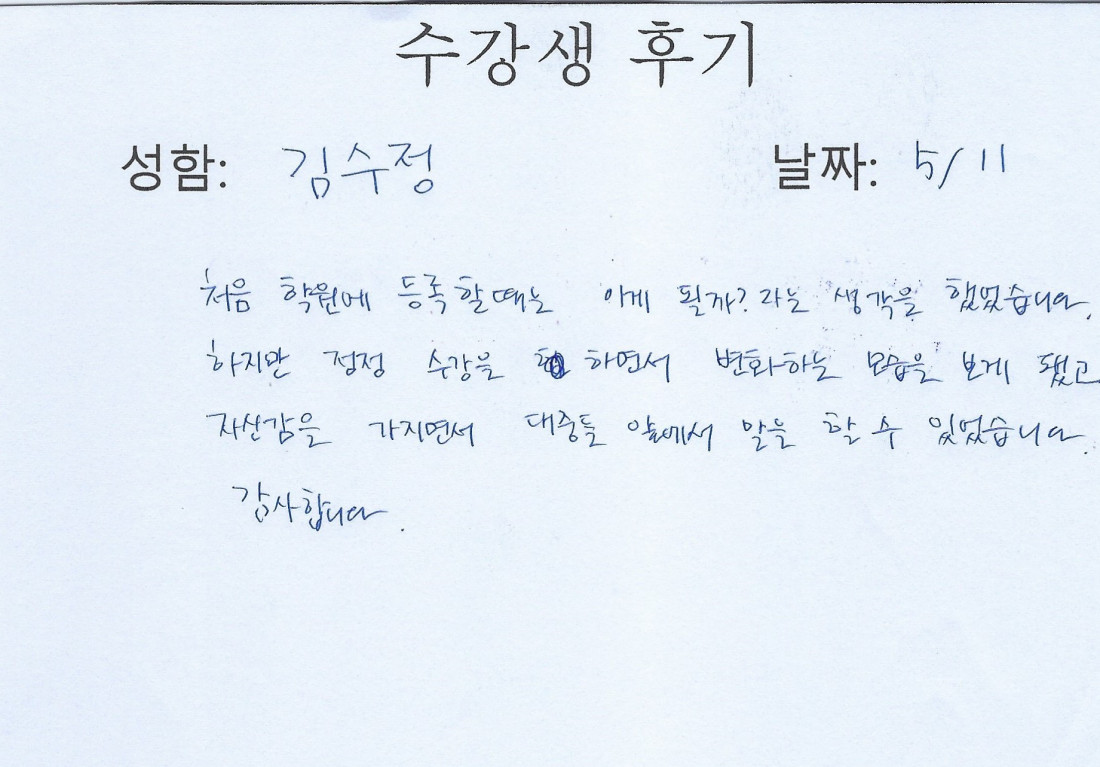 수강생 후기
성함: 김수정 날짜: 5/11
처음 학원에 등록할때는 이게 될까? 라는 생각을 했었습니다.
하지만 점점 수강을 하면서 변화하는 모습을 보게 됐고
자신감을 가지면서 대중들 앞에서 말을 할 수 있었습니다.
감사합니다.